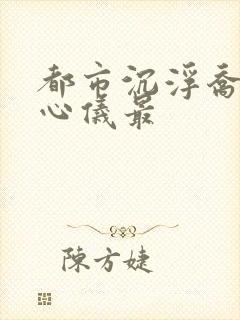 都市沉浮喬
心儀最
陳方婕